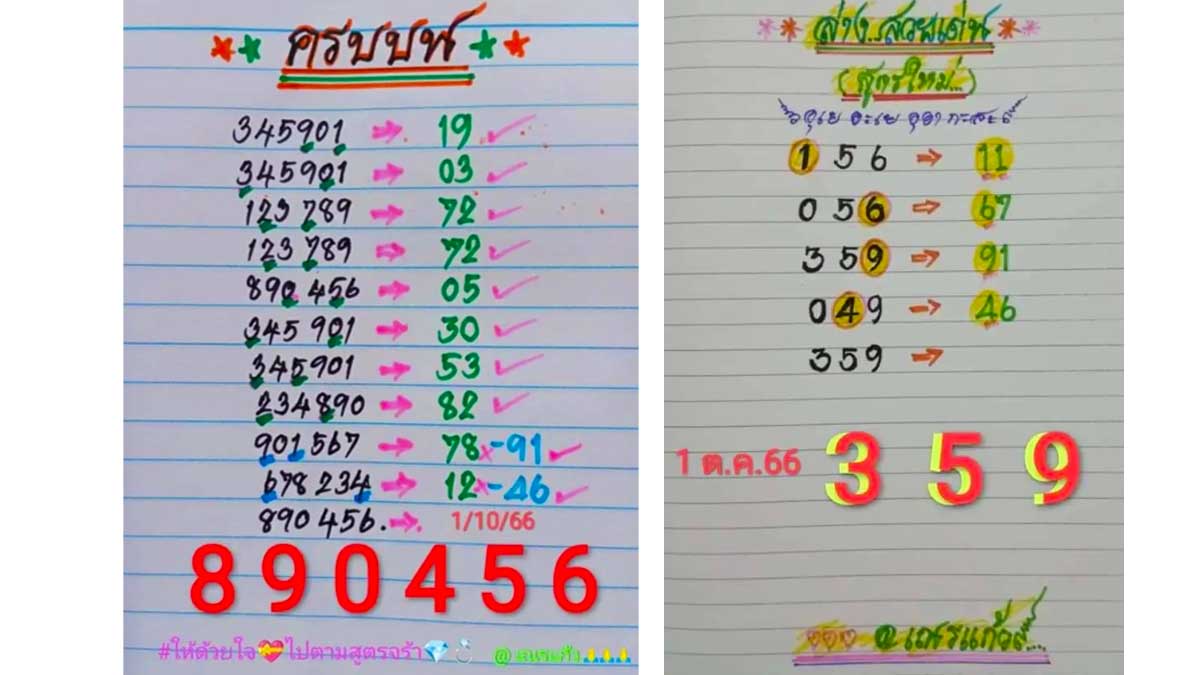 ครบบน
345901 → 19 ✓
345901 → 03 ✓
123 789 → 72 ✓
123 789 → 72 ✓
890 456 → 05 ✓
345 901 → 30 ✓
345901 → 53 ✓
234890 → 82 ✓
901567 → 78 × -91 ✓
678 234 → 12 × -46 ✓
890 456. → 1/10/66
890456
#ให้ด้วยใจ💝ไปตามสูตรจร้า💎💍
@ เณรแก้ว🙏🙏🙏
ล่าง..สวยเด่น
(สูตรใหม่...)
1 5 6 → 11
0 5 6 → 67
3 5 9 → 91
0 4 9 → 46
3 5 9 →
1 ต.ค.66 3 5 9
♡♡♡ @เณรแก้ว